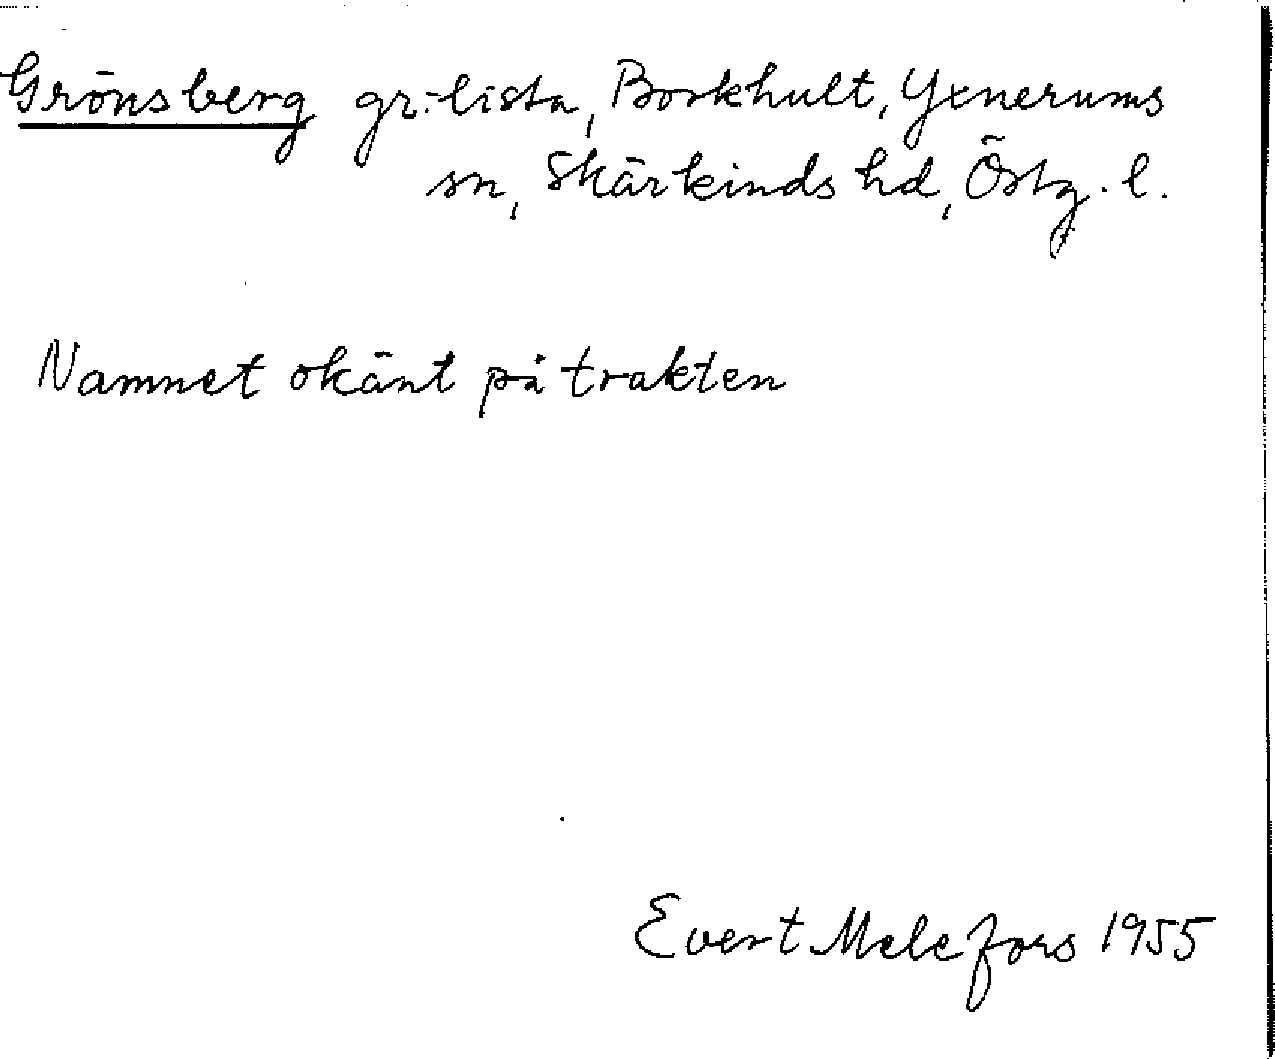 Grönsberg gr.-lista, Borkhult, Yxnerums
sn, Skärkinds hd, Östg. l.
Namnet okänt på trakten
Evert Melefors 1955